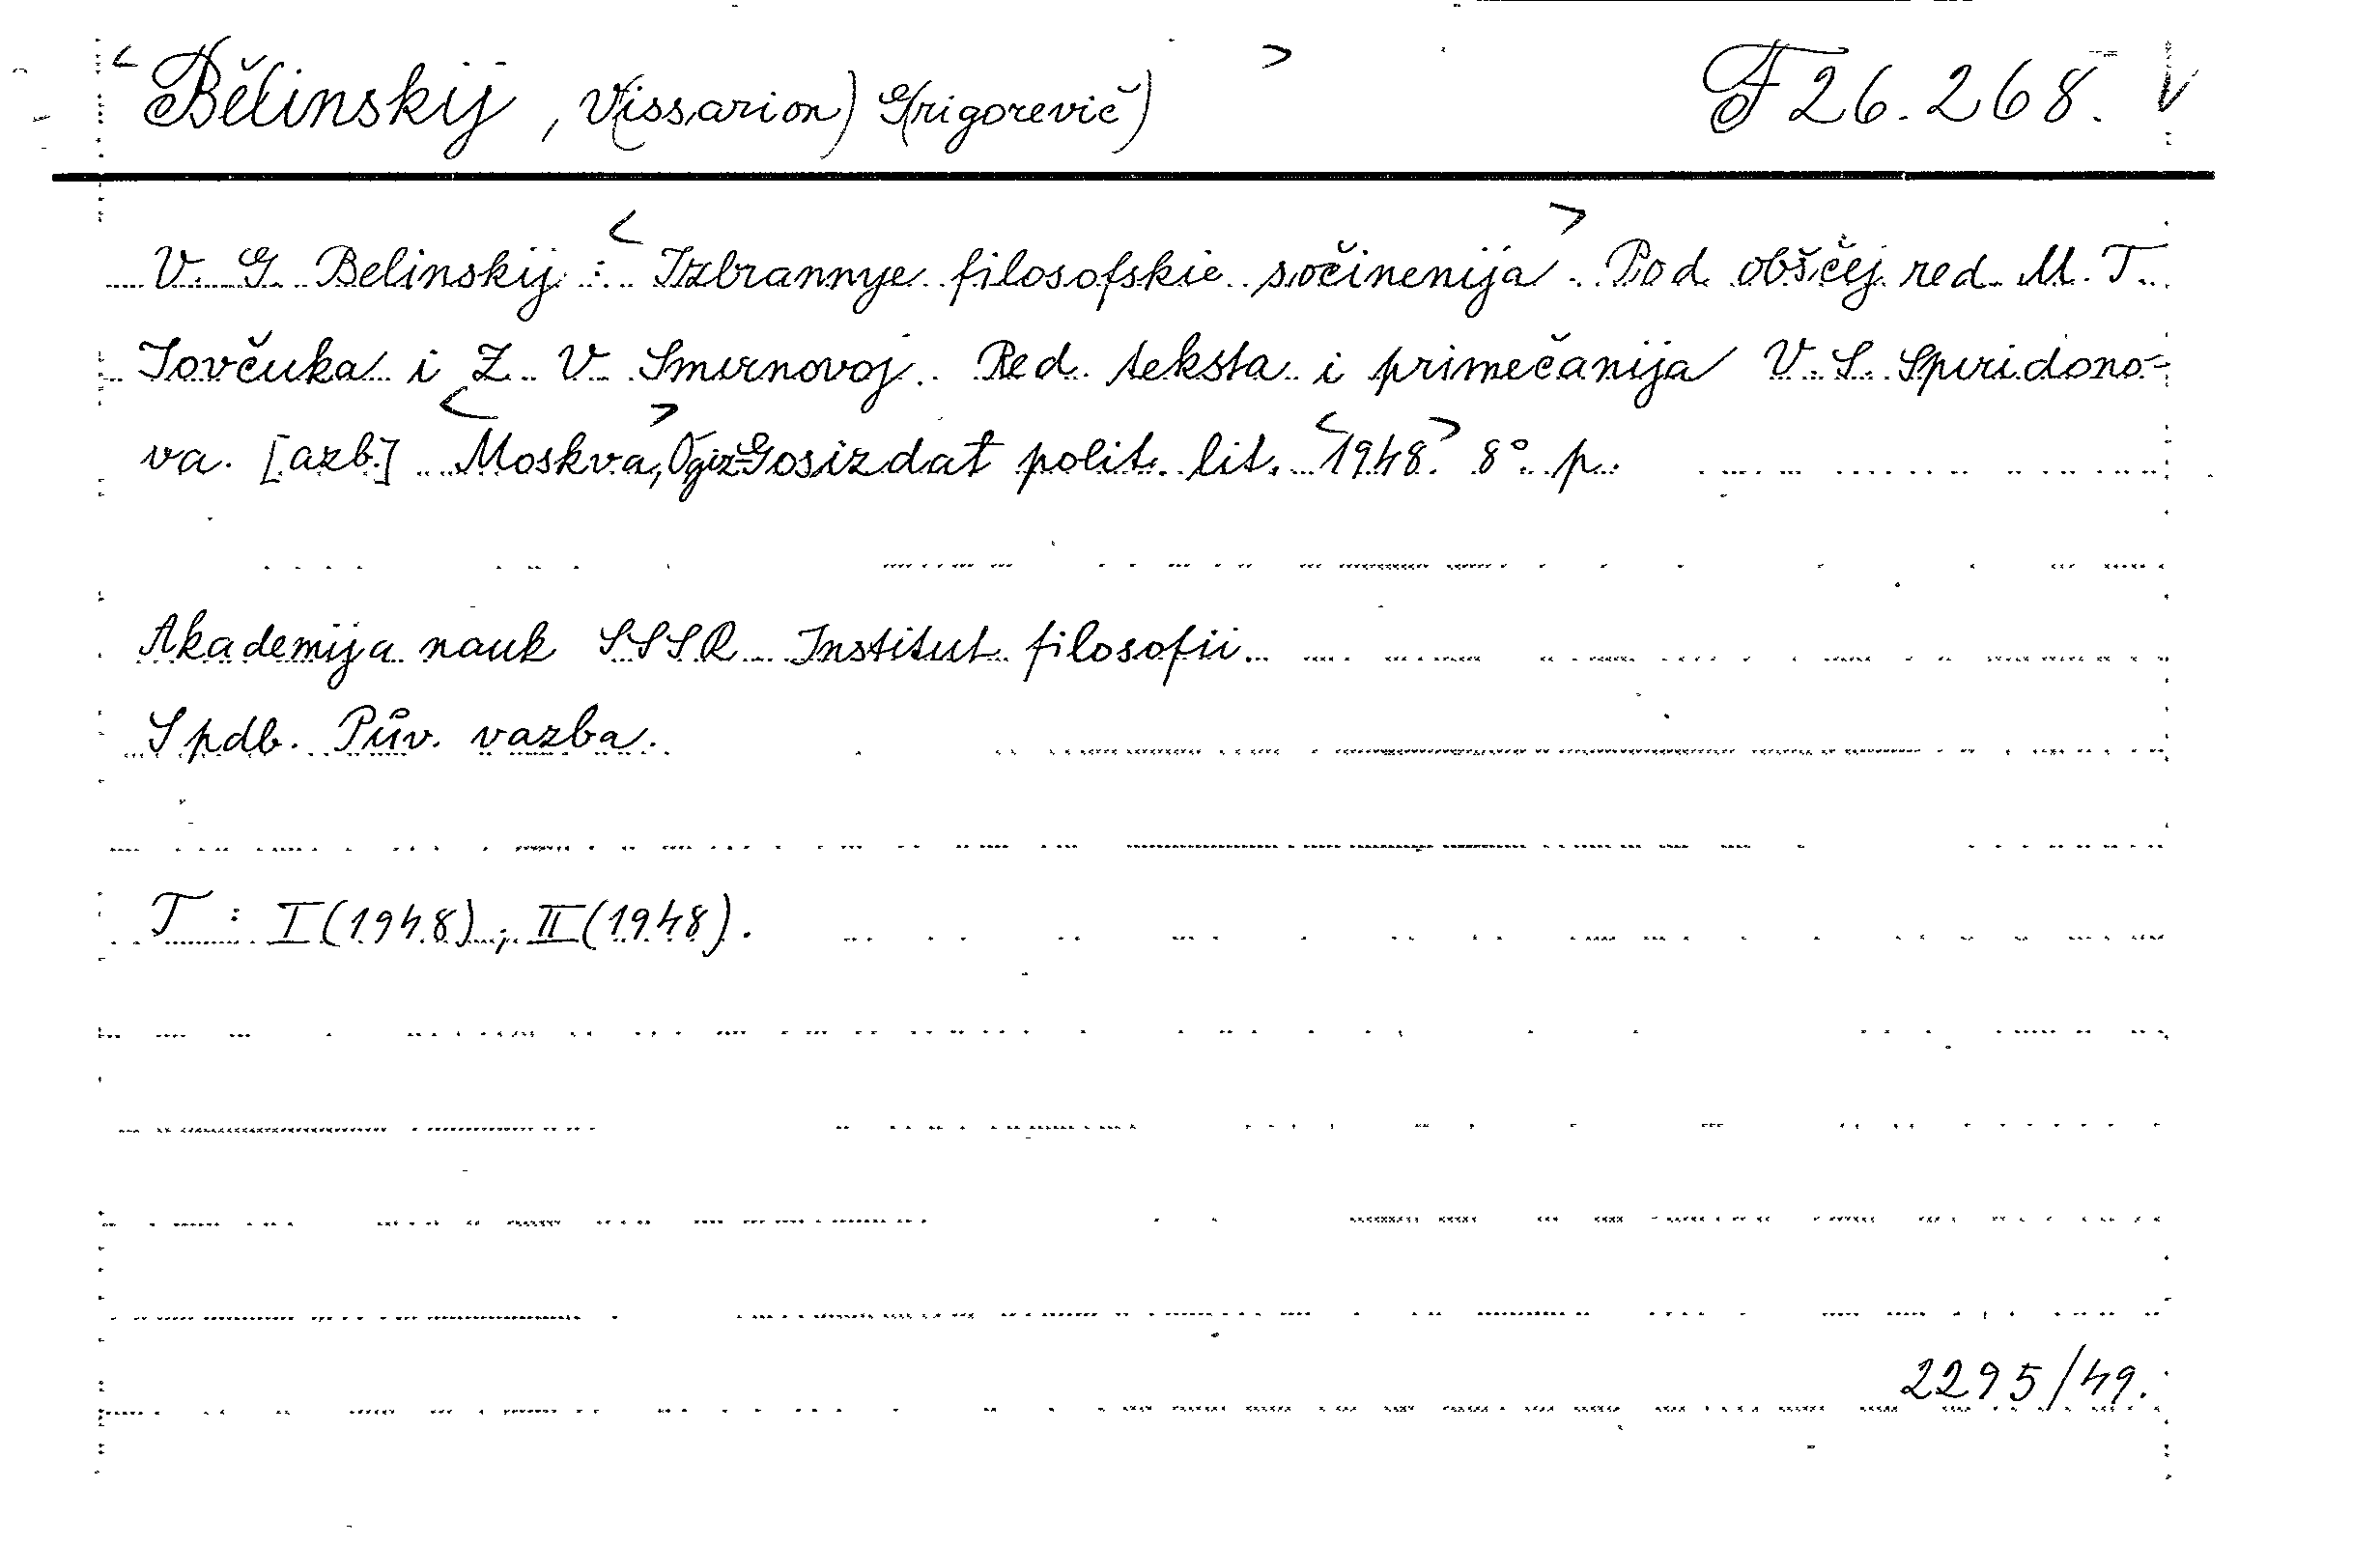 <Bělinskij, V(issarion) G(rigorevič)> F 26.268. V
V. G. Belinskij: <Izbrannye filosofskie sočinenija>. Pod obščej red. M. T.
Iovčuka i Z. V. Smirnovoj. Red. teksta i primečanija V. S. Spiridono-
va. [azb.] <Moskva>, Ogiz-Gosizdat polit. lit. <1948.> 8° p.
Akademija nauk SSSR Institut filosofii.
S pdb. Pův. vazba.
T: I (1948), II (1948).
2295/49.